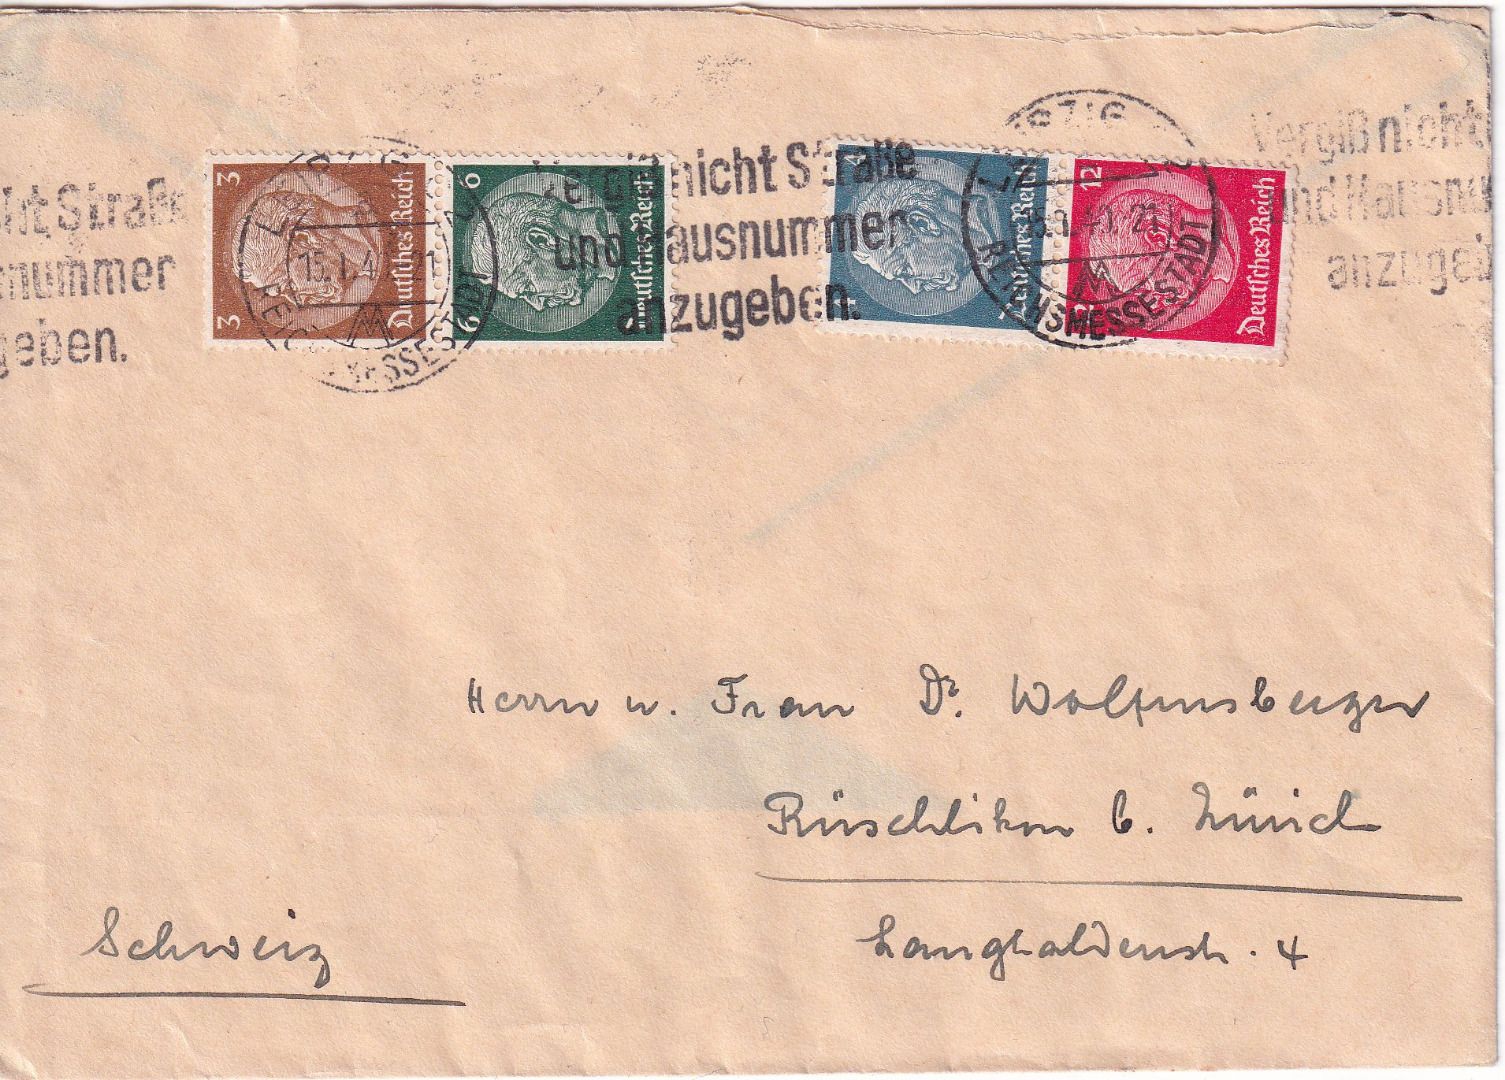 Vergiß nicht Straße
und Hausnummer
anzugeben.
ht Straße
nummer
geben.
Vergiß nicht
und Hausnu
anzugeb
3 Deutsches Reich 3
6 Deutsches Reich 6
4 Deutsches Reich 4
12 Deutsches Reich
LEIPZIG
15.1.4
REICHSMESSESTADT
LEIPZIG
REICHSMESSESTADT
Herrn u. Frau Dr. Wolfensberger
Rüschlikon b. Zürich
Langhaldenstr. 4
Schweiz